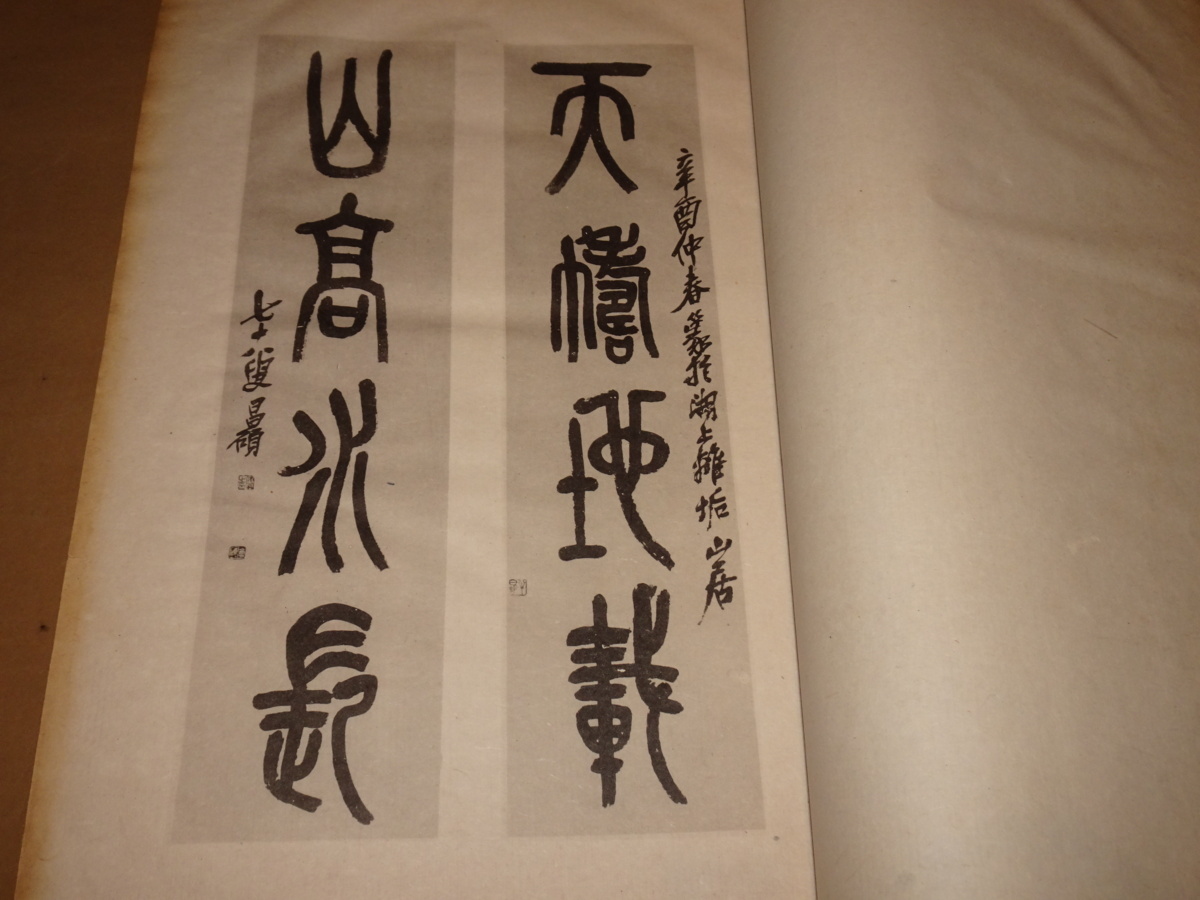 辛酉仲春篆於湖上離垢山居
天幬地載
山高水長
七十八叟昌碩